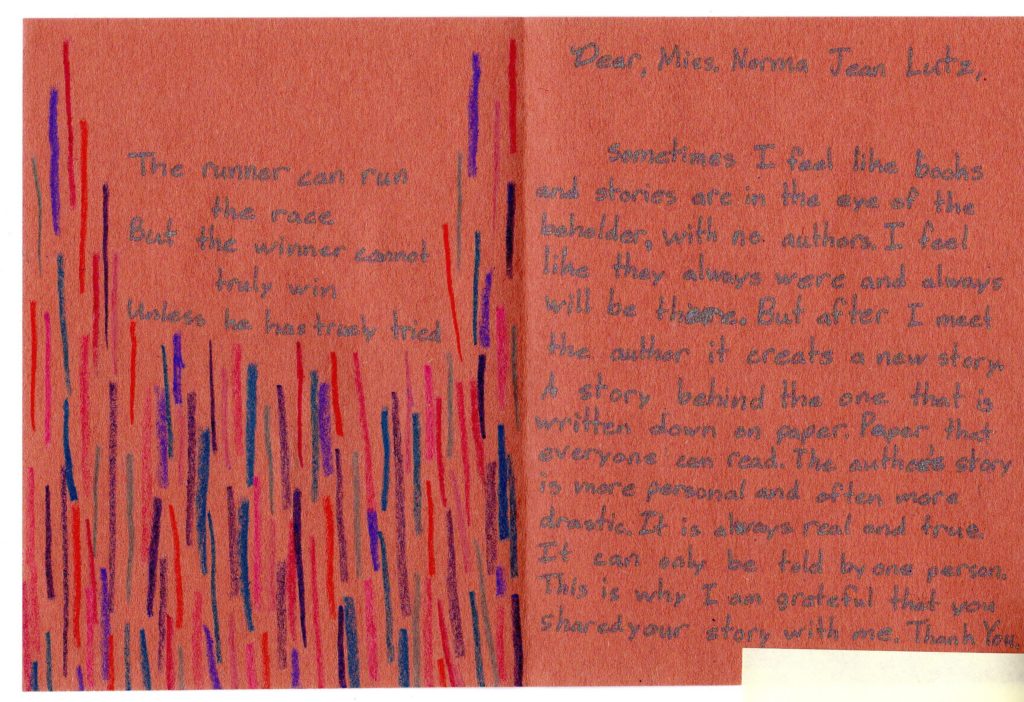 The runner can run
the race
But the winner cannot
truly win
Unless he has truely tried
Dear, Miss. Norma Jean Lutz,
Sometimes I feel like books
and stories are in the eye of the
beholder, with no authors. I feel
like they always were and always
will be there. But after I meet
the author it creats a new story.
A story behind the one that is
written down on paper. Paper that
everyone can read. The authors story
is more personal and often more
drastic. It is always real and true.
It can only be told by one person.
This is why I am grateful that you
shared your story with me. Thank You.